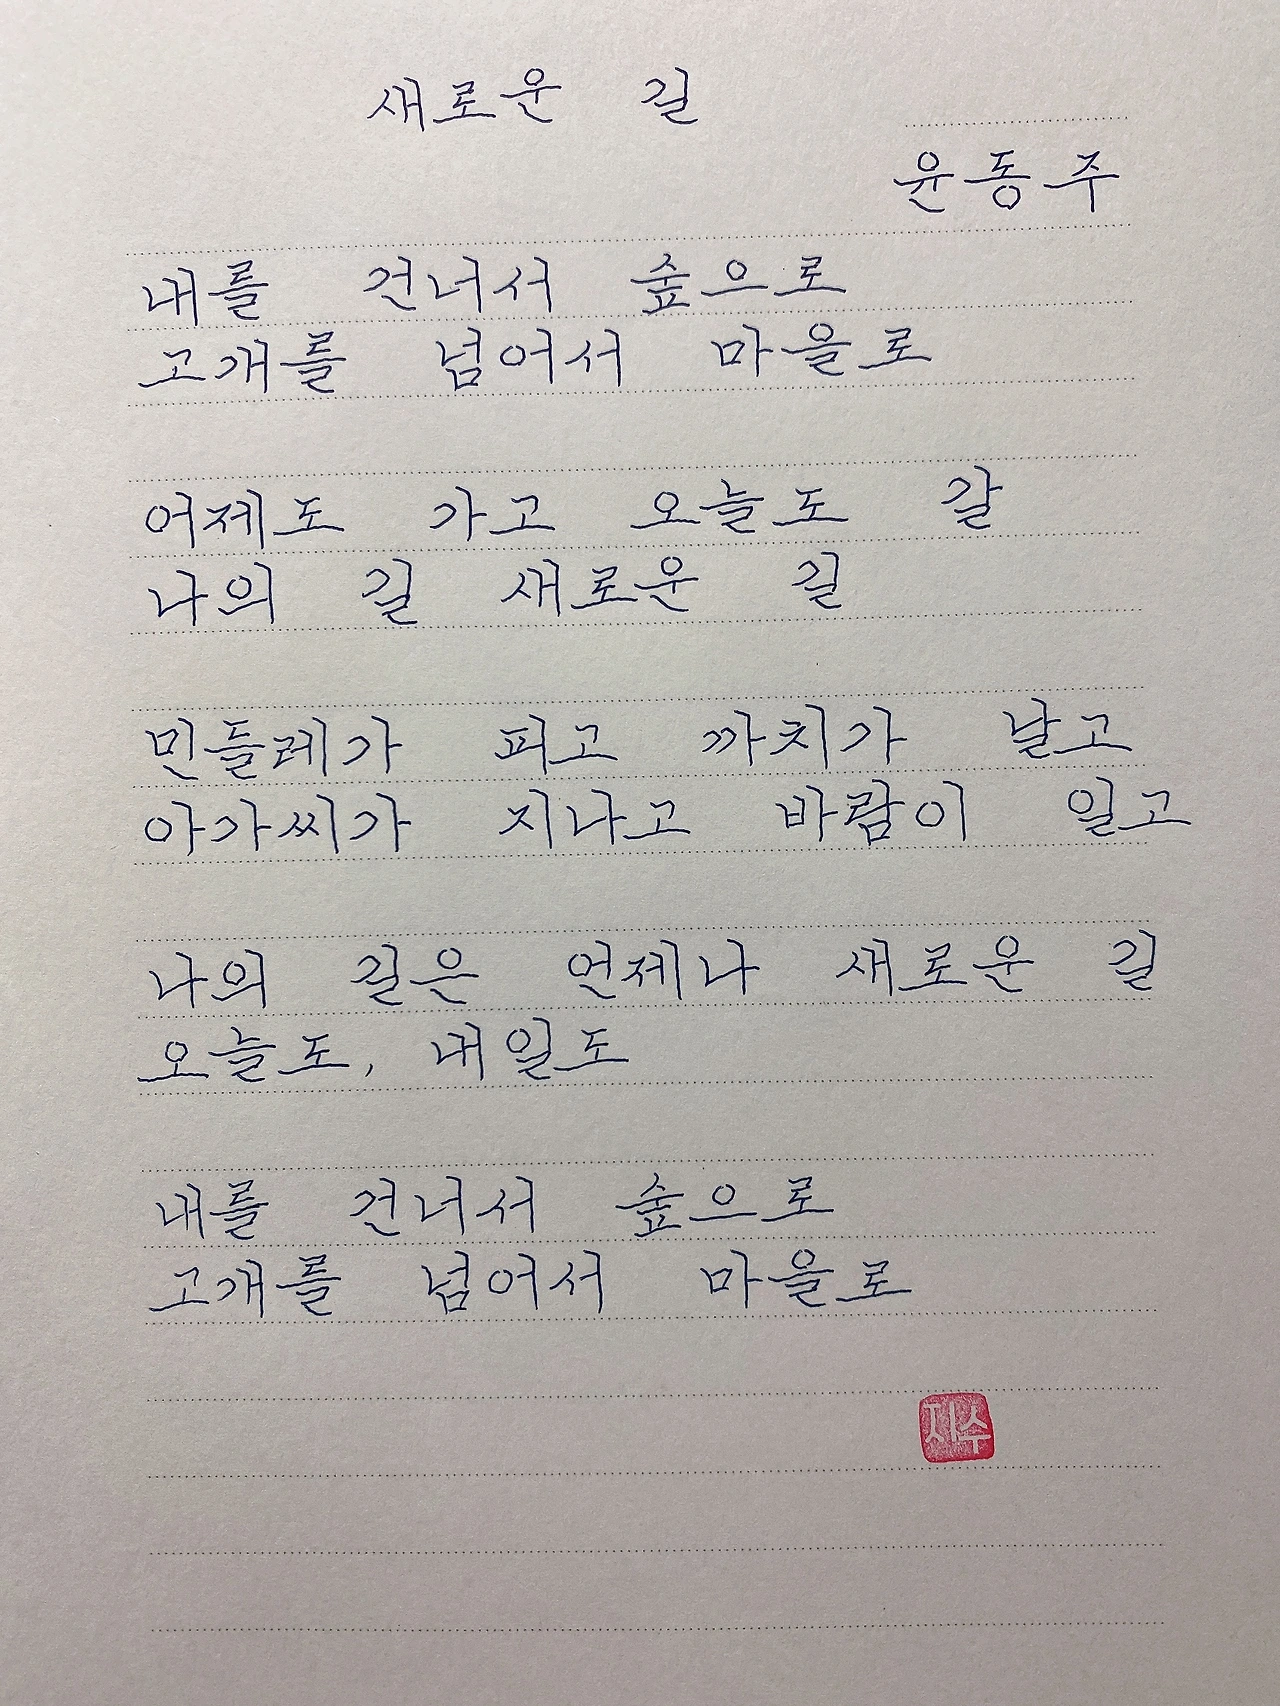 새로운 길
윤동주
내를 건너서 숲으로
고개를 넘어서 마을로
어제도 가고 오늘도 갈
나의 길 새로운 길
민들레가 피고 까치가 날고
아가씨가 지나고 바람이 일고
나의 길은 언제나 새로운 길
오늘도, 내일도
내를 건너서 숲으로
고개를 넘어서 마을로